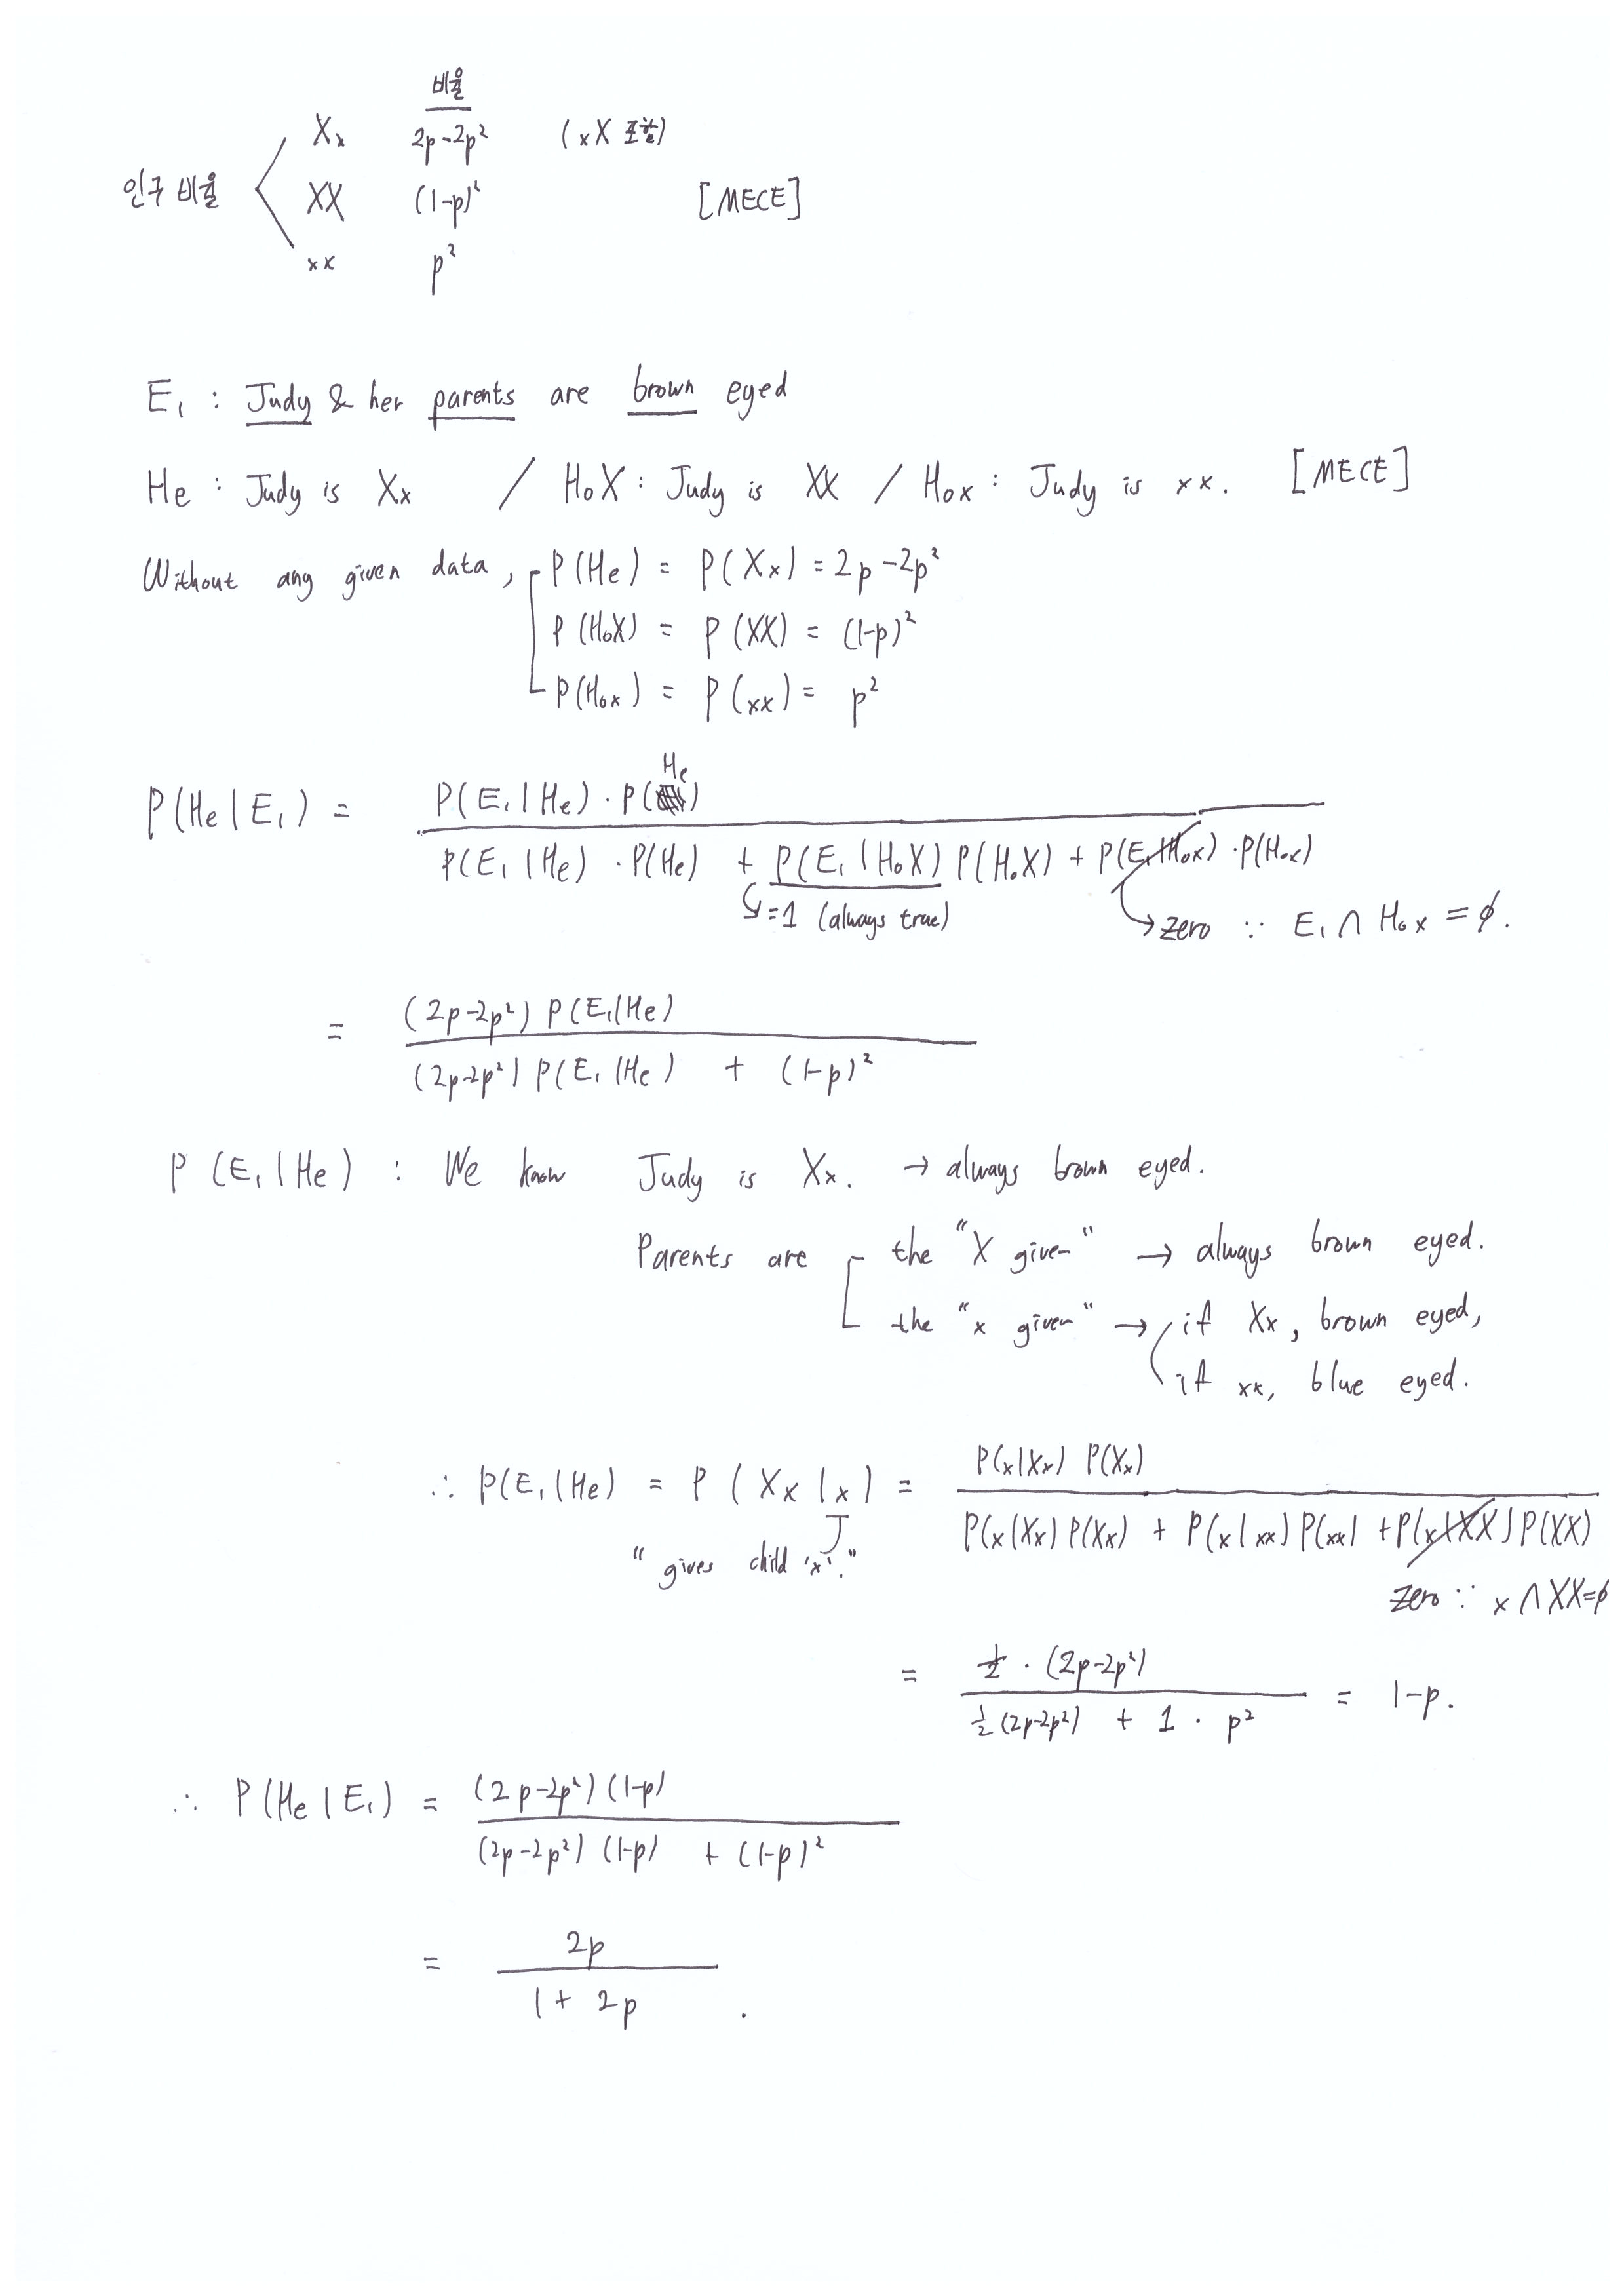 비율
Xx 2p-2p² (xX 포함)
인구 비율 XX (1-p)² [MECE]
xx p²
E₁ : Judy & her parents are brown eyed
He : Judy is Xx / HoX : Judy is XX / Hox : Judy is xx. [MECE]
Without any given data, P(He) = P(Xx) = 2p-2p²
P(HoX) = P(XX) = (1-p)²
P(Hox) = P(xx) = p²
He
P(E₁|He)·P( )
P(He|E₁) =
P(E₁|He)·P(He) + P(E₁|HoX) P(HoX) + P(E₁|Hox)·P(Hox)
=1 (always true)
zero ∵ E₁ ∩ Hox = ∅.
(2p-2p²) P(E₁|He)
=
(2p-2p²) P(E₁|He) + (1-p)²
P(E₁|He) : We know Judy is Xx. → always brown eyed.
Parents are the "X given" → always brown eyed.
the "x given" → if Xx, brown eyed,
if xx, blue eyed.
P(x|Xx) P(Xx)
∴ P(E₁|He) = P(Xx|x) =
P(x|Xx) P(Xx) + P(x|xx) P(xx) + P(x|XX) P(XX)
"gives child 'x'."
zero ∵ x ∩ XX=∅
½ · (2p-2p²)
= = 1-p.
½(2p-2p²) + 1 · p²
(2p-2p²)(1-p)
∴ P(He|E₁) =
(2p-2p²)(1-p) + (1-p)²
2p
=
1 + 2p .